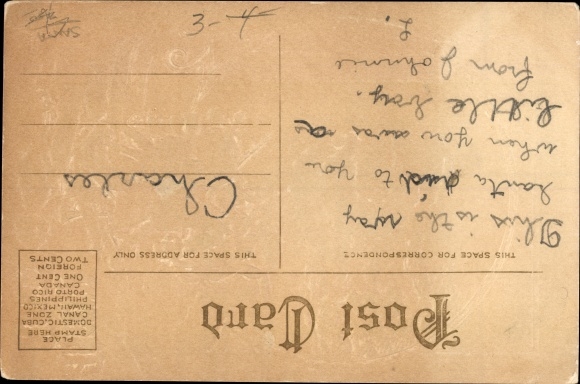 Post Card
THIS SPACE FOR CORRESPONDENCE
THIS SPACE FOR ADDRESS ONLY
PLACE
STAMP HERE
DOMESTIC, CUBA
CANAL ZONE
HAWAII, MEXICO
PHILIPPINES
PORTO RICO
CANADA
ONE CENT
FOREIGN
TWO CENTS
This is the way
Santa did to you
when you was a
little boy.
from Johnnie
L.
Charles
3-4